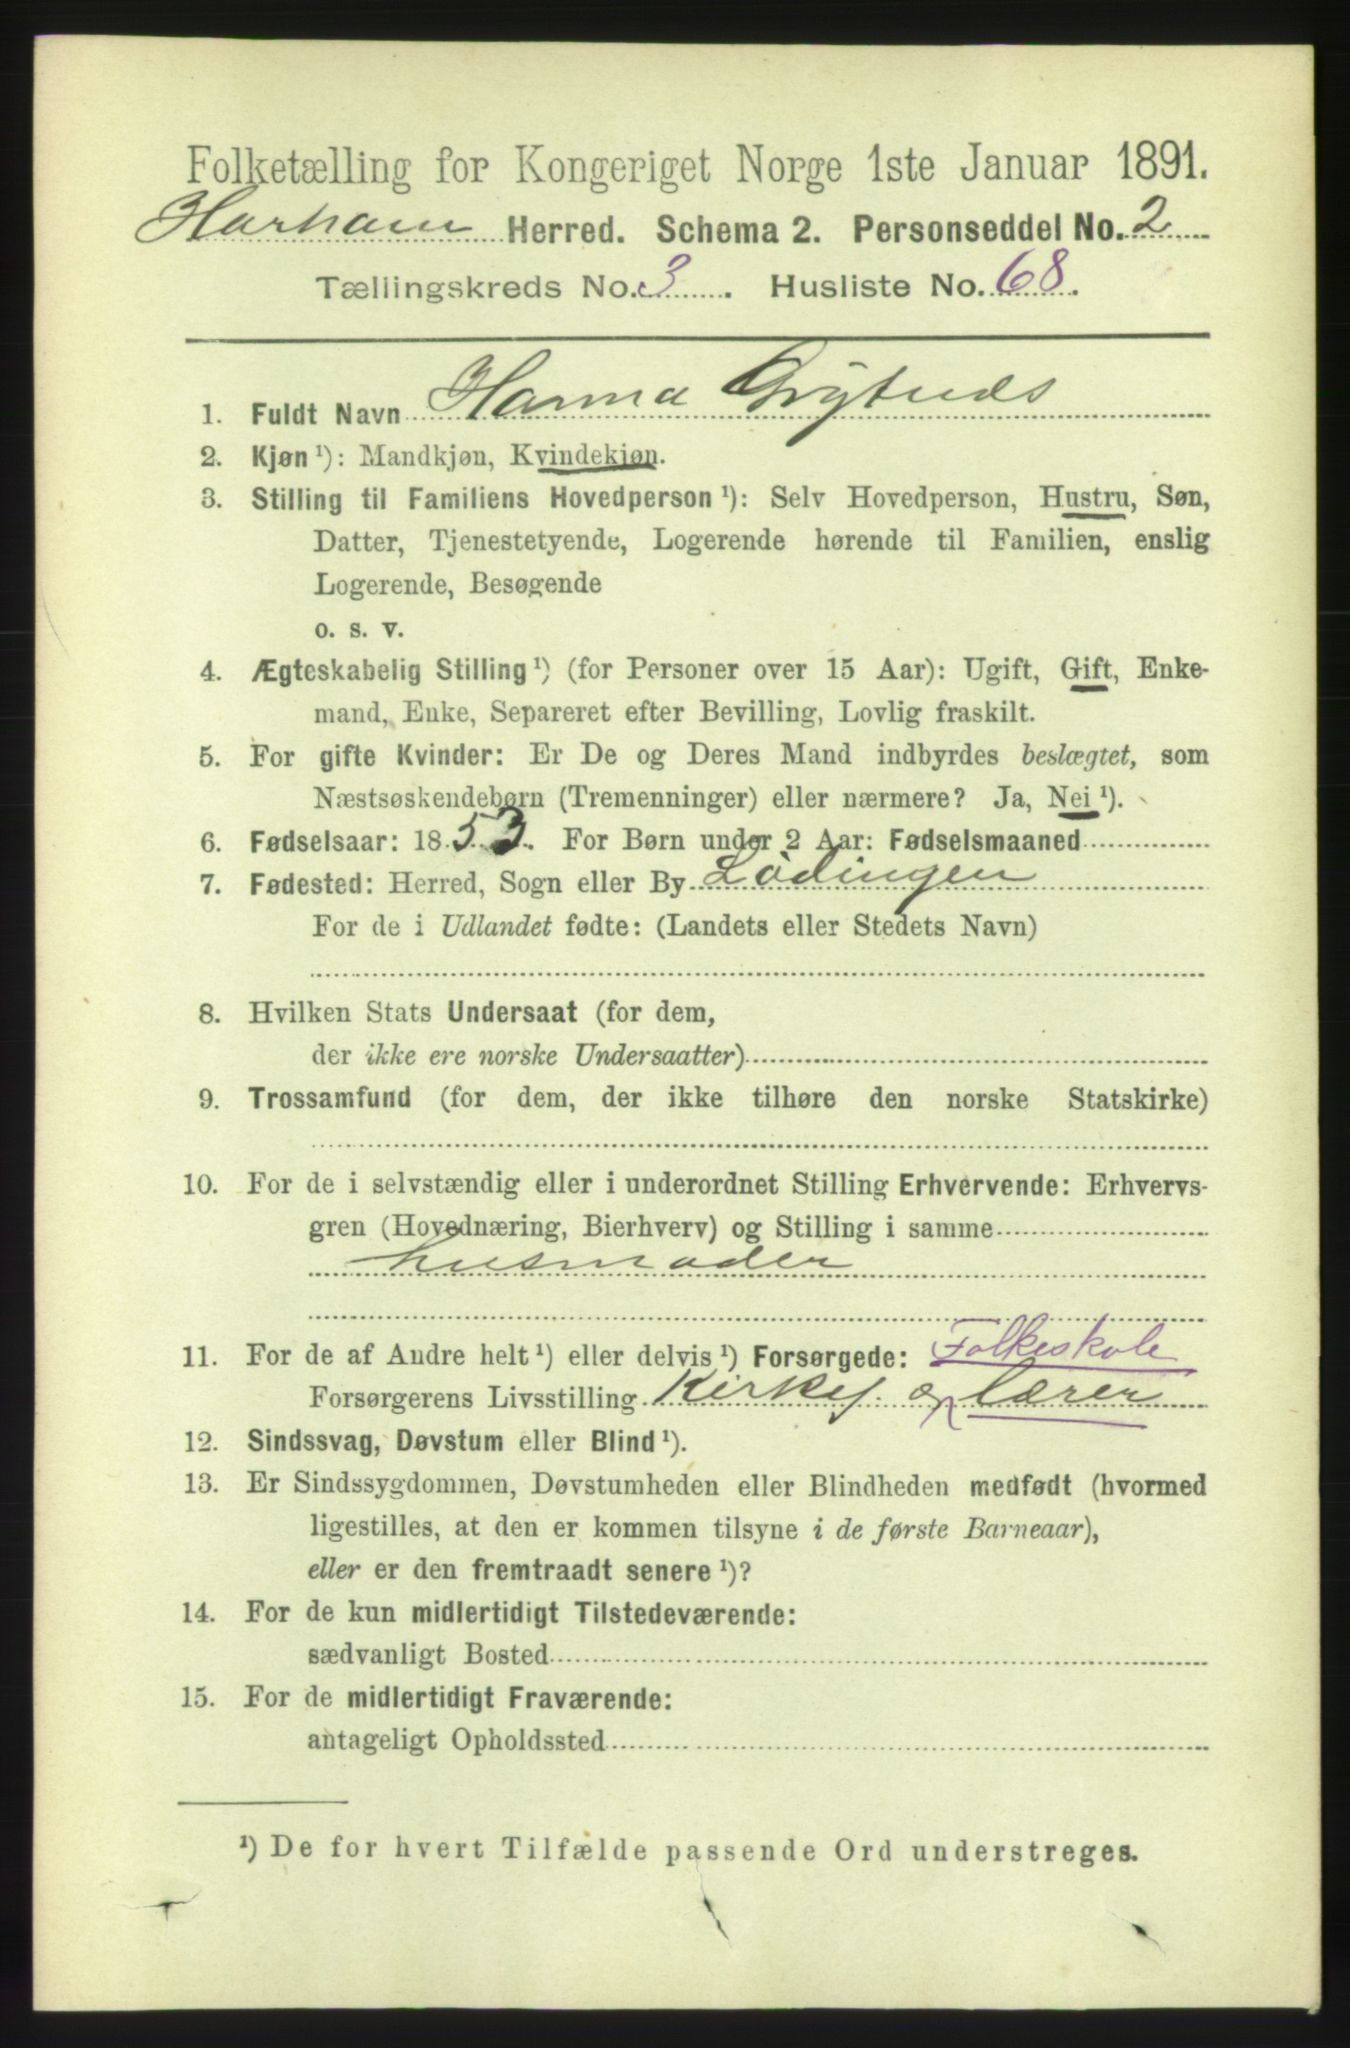 Folketælling for Kongeriget Norge 1ste Januar 1891.
Harham Herred. Schema 2. Personseddel No. 2
Tællingskreds No. 3. Husliste No. 68.
1. Fuldt Navn Hanna Grytnes
2. Kjøn ¹): Mandkjøn, Kvindekjøn.
3. Stilling til Familiens Hovedperson ¹): Selv Hovedperson, Hustru, Søn,
Datter, Tjenestetyende, Logerende hørende til Familien, enslig
Logerende, Besøgende
o. s. v.
4. Ægteskabelig Stilling ¹) (for Personer over 15 Aar): Ugift, Gift, Enke-
mand, Enke, Separeret efter Bevilling, Lovlig fraskilt.
5. For gifte Kvinder: Er De og Deres Mand indbyrdes beslægtet, som
Næstsøskendebørn (Tremenninger) eller nærmere? Ja, Nei ¹).
6. Fødselsaar: 1853. For Børn under 2 Aar: Fødselsmaaned
7. Fødested: Herred, Sogn eller By Lødingen
For de i Udlandet fødte: (Landets eller Stedets Navn)
8. Hvilken Stats Undersaat (for dem,
der ikke ere norske Undersaatter)
9. Trossamfund (for dem, der ikke tilhøre den norske Statskirke)
10. For de i selvstændig eller i underordnet Stilling Erhvervende: Erhvervs-
gren (Hovednæring, Bierhverv) og Stilling i samme
husmoder
11. For de af Andre helt ¹) eller delvis ¹) Forsørgede: Folkeskole
Forsørgerens Livsstilling Kirkes. og lærer
12. Sindssvag, Døvstum eller Blind ¹).
13. Er Sindssygdommen, Døvstumheden eller Blindheden medfødt (hvormed
ligestilles, at den er kommen tilsyne i de første Barneaar),
eller er den fremtraadt senere ¹)?
14. For de kun midlertidigt Tilstedeværende:
sædvanligt Bosted
15. For de midlertidigt Fraværende:
antageligt Opholdssted
¹) De for hvert Tilfælde passende Ord understreges.